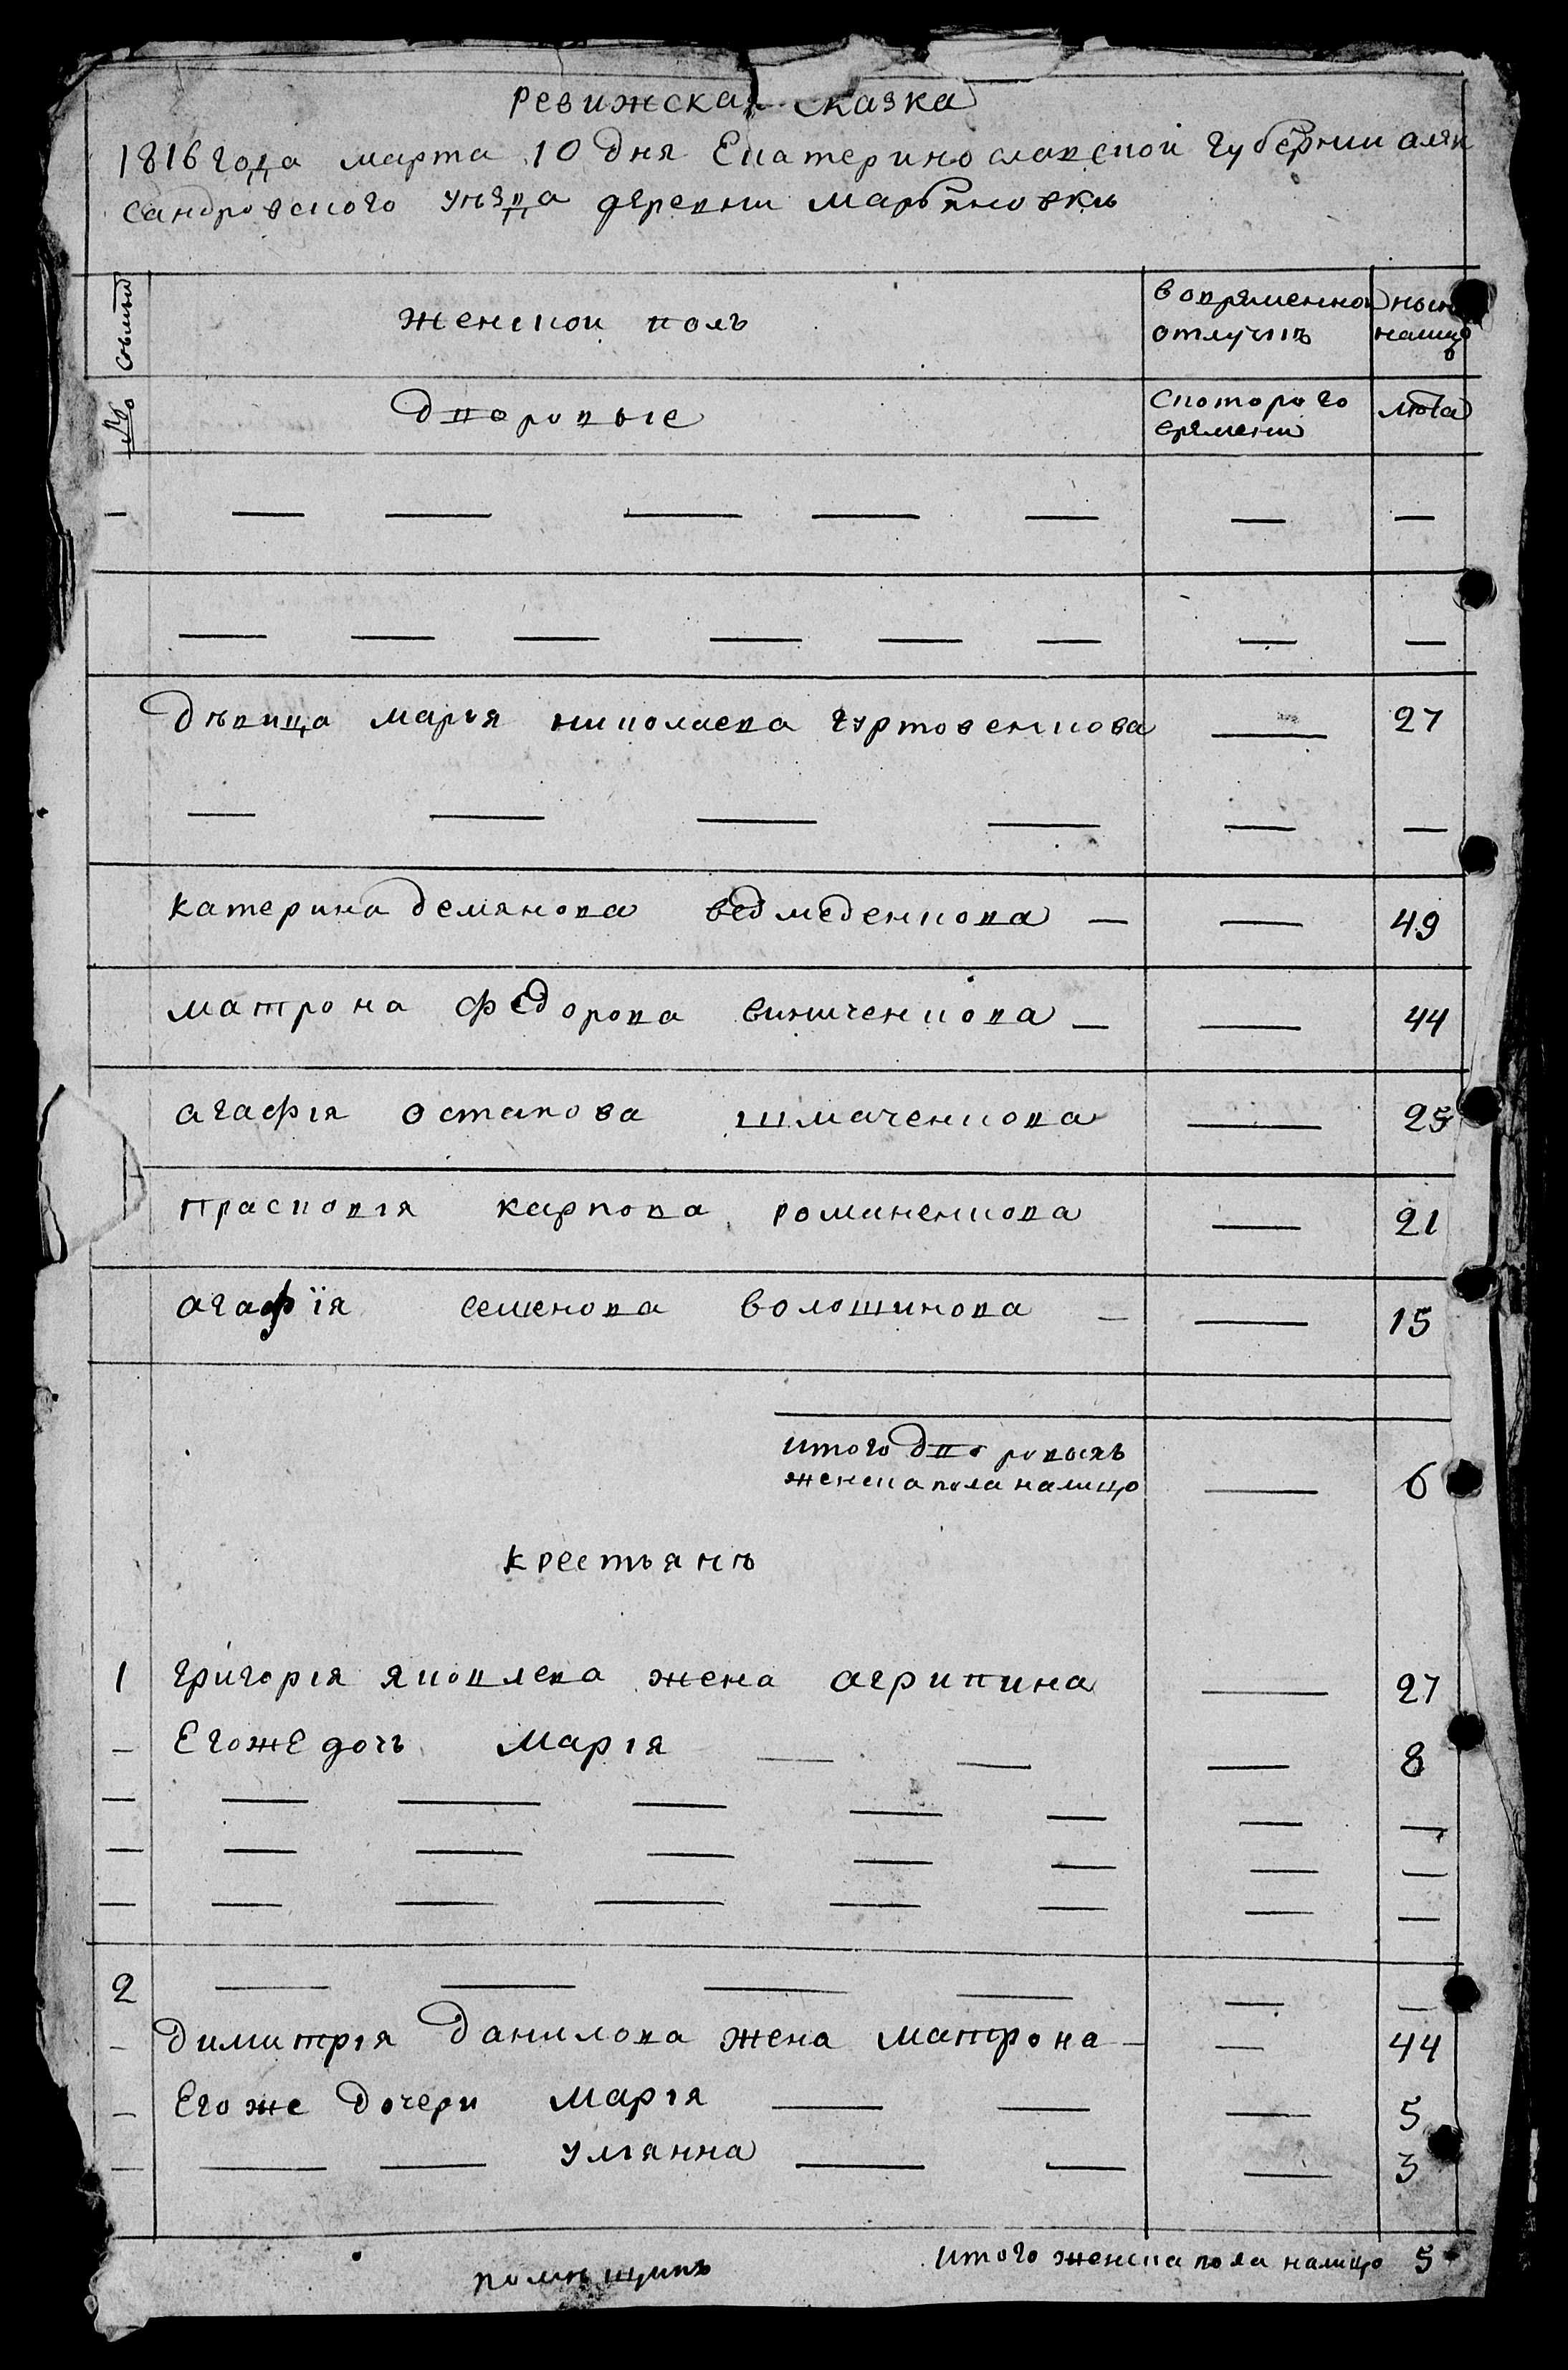 ревижская сказка
1816 года марта 10 дня Екатеринославской губернии алек
сандровского уезда деревни марьяновкъ
семьи женской полъ вовременной отлучкъ ныне налицо
№ дворовые скоторого времени лѣта
— — — — — — — —
— — — — — — — —
дѣвица марья николаева гуртовенкова — 27
— — — — — —
катерина демянова ведмеденкова — — 49
матрона федорова виниченкова — — 44
агафiя остапова шмаченкова — 25
прасковiя карпова романенкова — 21
агафїя семенова волошинова — — 15
итого дворовыхъ
женска пола налицо — 6
крестьянъ
1 григорiя яковлева жена агрипина — 27
— Егоже дочь марiя — — — 8
— — — — — — — —
— — — — — — — —
— — — — — — — —
2 — — — — — —
— димитрiя данилова жена матрона — — 44
— Егоже дочери марiя — — — 5
— — — улiянна — — — 3
итого женска пола налицо 5
помѣщикъ